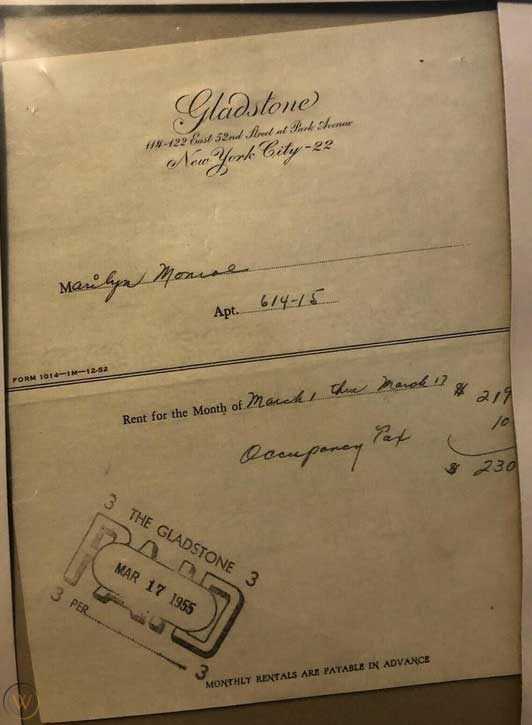 Gladstone
114-122 East 52nd Street at Park Avenue
New York City - 22
Marilyn Monroe
Apt. 614-15
FORM 1014—1M—12-52
Rent for the Month of March 1 thru March 17 $ 219
10
Occupancy Tax
$ 230
3 THE GLADSTONE 3
PAID
MAR 17 1955
3 PER 3
MONTHLY RENTALS ARE PAYABLE IN ADVANCE
W